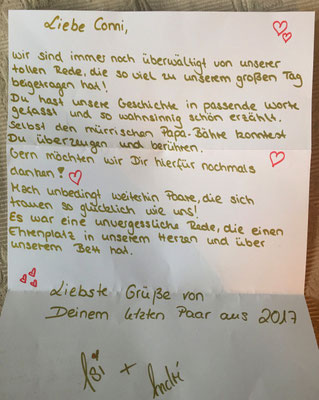 Liebe Conni,
wir sind immer noch überwältigt von unserer
tollen Rede, die so viel zu unserem großen Tag
beigetragen hat!
Du hast unsere Geschichte in passende Worte
gefasst und so wahnsinnig schön erzählt.
Selbst den mürrischen Papa-Böhke konntest
Du überzeugen und berühren.
Gern möchten wir Dir hierfür nochmals
danken!
Mach unbedingt weiterhin Paare, die sich
trauen so glücklich wie uns!
Es war eine unvergessliche Rede, die einen
Ehrenplatz in unserem Herzen und über
unserem Bett hat.
Liebste Grüße von
Deinem letzten Paar aus 2017
Isi + André